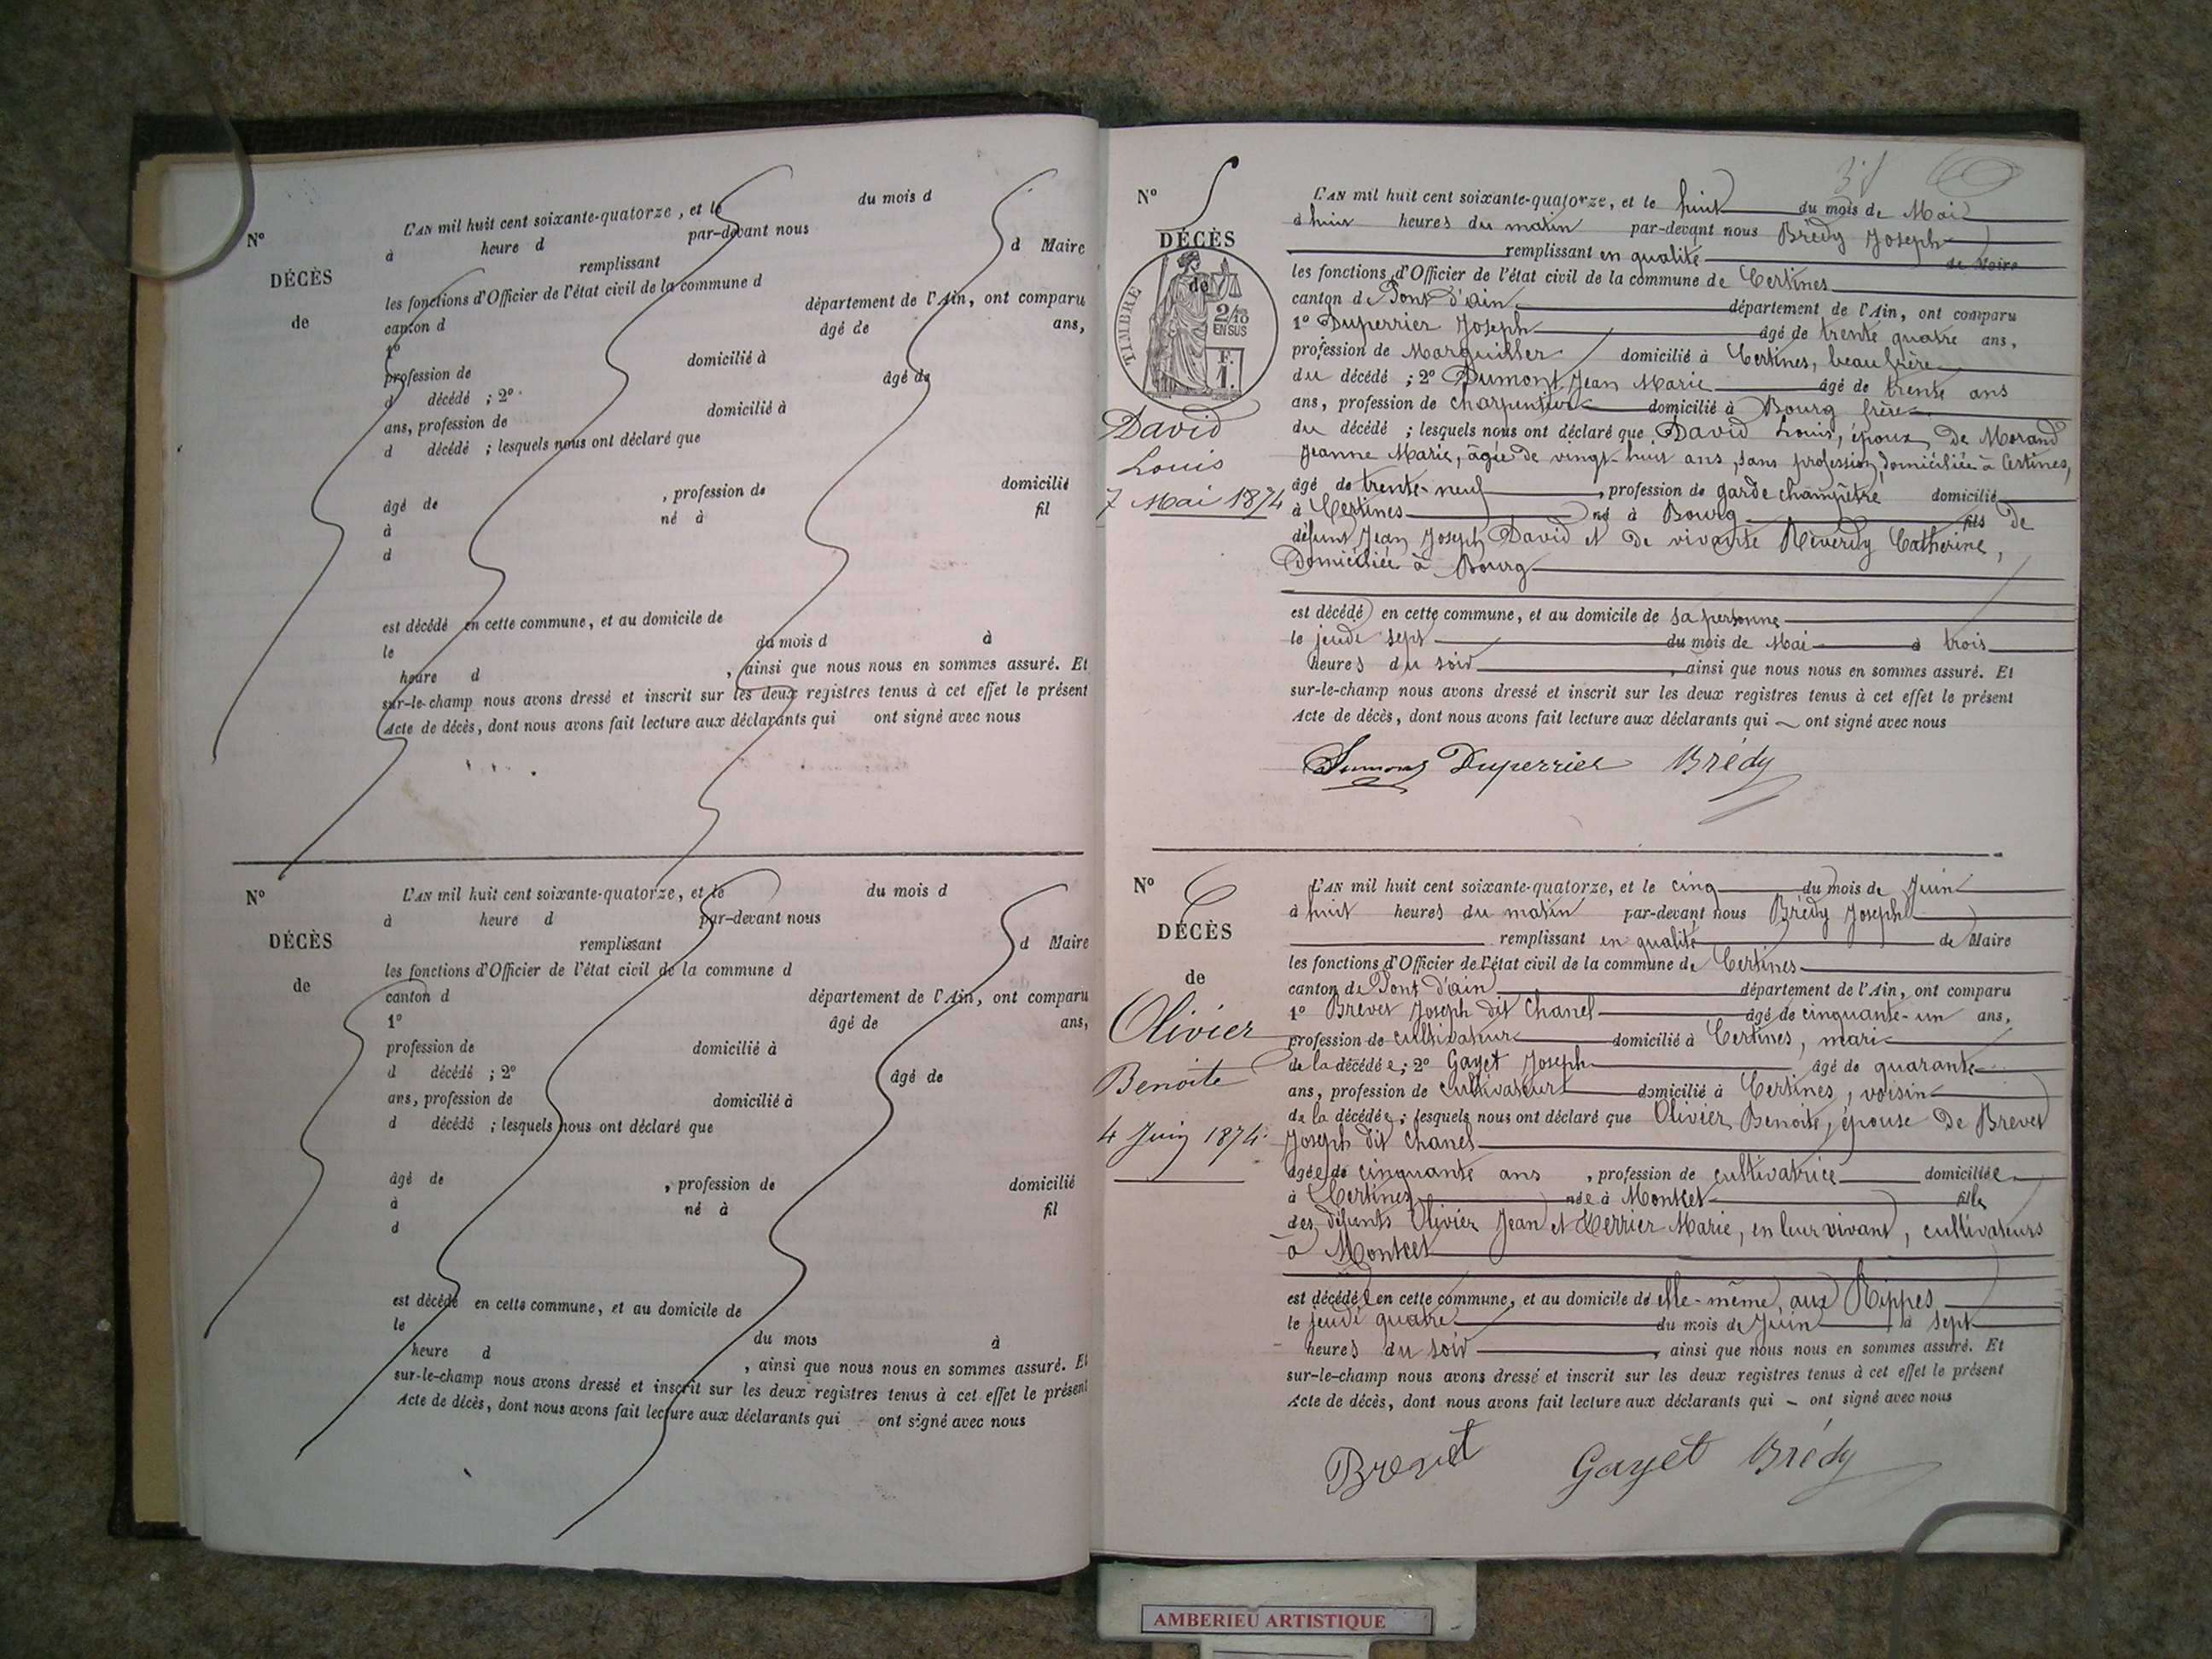 N°
DÉCÈS
de
L'AN mil huit cent soixante-quatorze, et le du mois d
à heure d par-devant nous
remplissant d Maire
les fonctions d'Officier de l'état civil de la commune d
canton d département de l'Ain, ont comparu
1° âgé de ans,
profession de domicilié à
d décédé ; 2° âgé de
ans, profession de domicilié à
d décédé ; lesquels nous ont déclaré que
âgé de , profession de domicilié
à né à fil
d
est décédé en cette commune, et au domicile de
le du mois d à
heure d , ainsi que nous nous en sommes assuré. Et
sur-le-champ nous avons dressé et inscrit sur les deux registres tenus à cet effet le présent
Acte de décès, dont nous avons fait lecture aux déclarants qui ont signé avec nous
N°
DÉCÈS
de
L'AN mil huit cent soixante-quatorze, et le du mois d
à heure d par-devant nous
remplissant d Maire
les fonctions d'Officier de l'état civil de la commune d
canton d département de l'Ain, ont comparu
1° âgé de ans,
profession de domicilié à
d décédé ; 2° âgé de
ans, profession de domicilié à
d décédé ; lesquels nous ont déclaré que
âgé de , profession de domicilié
à né à fil
d
est décédé en cette commune, et au domicile de
le du mois à
heure d , ainsi que nous nous en sommes assuré. Et
sur-le-champ nous avons dressé et inscrit sur les deux registres tenus à cet effet le présent
Acte de décès, dont nous avons fait lecture aux déclarants qui ont signé avec nous
N° 5
DÉCÈS
de
TIMBRE
2/10
EN SUS
F.
1.
David
Louis
7 Mai 1874
L'AN mil huit cent soixante-quatorze, et le huit du mois de Mai
à huit heures du matin par-devant nous Brédy Joseph
remplissant en qualité de Maire
les fonctions d'Officier de l'état civil de la commune de Certines
canton de Pont d'ain département de l'Ain, ont comparu
1° Duperrier Joseph âgé de trente quatre ans,
profession de Marguiller domicilié à Certines, beau frère
du décédé ; 2° Dumont Jean Marie âgé de trente ans
ans, profession de charpentier domicilié à Bourg frère
du décédé ; lesquels nous ont déclaré que David Louis, époux de Morand
Jeanne Marie, âgée de vingt-huit ans, sans profession, domiciliée à Certines,
âgé de trente-neuf , profession de garde champêtre domicilié
à Certines né à Bourg fils de
défunt Jean Joseph David et de vivante Réverdy Catherine,
Domiciliée à Bourg
est décédé en cette commune, et au domicile de sa personne
le jeudi sept du mois de Mai à trois
heures du soir , ainsi que nous nous en sommes assuré. Et
sur-le-champ nous avons dressé et inscrit sur les deux registres tenus à cet effet le présent
Acte de décès, dont nous avons fait lecture aux déclarants qui ont signé avec nous
Dumont Duperrier Brédy
N° 6
DÉCÈS
de
Olivier
Benoite
4 Juin 1874.
L'AN mil huit cent soixante-quatorze, et le cinq du mois de Juin
à huit heures du matin par-devant nous Brédy Joseph
remplissant en qualité de Maire
les fonctions d'Officier de l'état civil de la commune de Certines
canton de Pont d'ain département de l'Ain, ont comparu
1° Brevet Joseph dit Chanel âgé de cinquante-un ans,
profession de cultivateur domicilié à Certines, mari
de la décédée ; 2° Gayet Joseph âgé de quarante
ans, profession de cultivateur domicilié à Certines, voisin
de la décédée ; lesquels nous ont déclaré que Olivier Benoite, épouse de Brevet
Joseph dit Chanel
âgée de cinquante ans , profession de cultivatrice domiciliée
à Certines née à Montcet fille
des défunts Olivier Jean et Perrier Marie, en leur vivant, cultivateurs
à Montcet
est décédée en cette commune, et au domicile de elle-même, aux Rippes
le jeudi quatre du mois de Juin à sept
heures du soir , ainsi que nous nous en sommes assuré. Et
sur-le-champ nous avons dressé et inscrit sur les deux registres tenus à cet effet le présent
Acte de décès, dont nous avons fait lecture aux déclarants qui ont signé avec nous
Brevet Gayet Brédy
AMBERIEU ARTISTIQUE